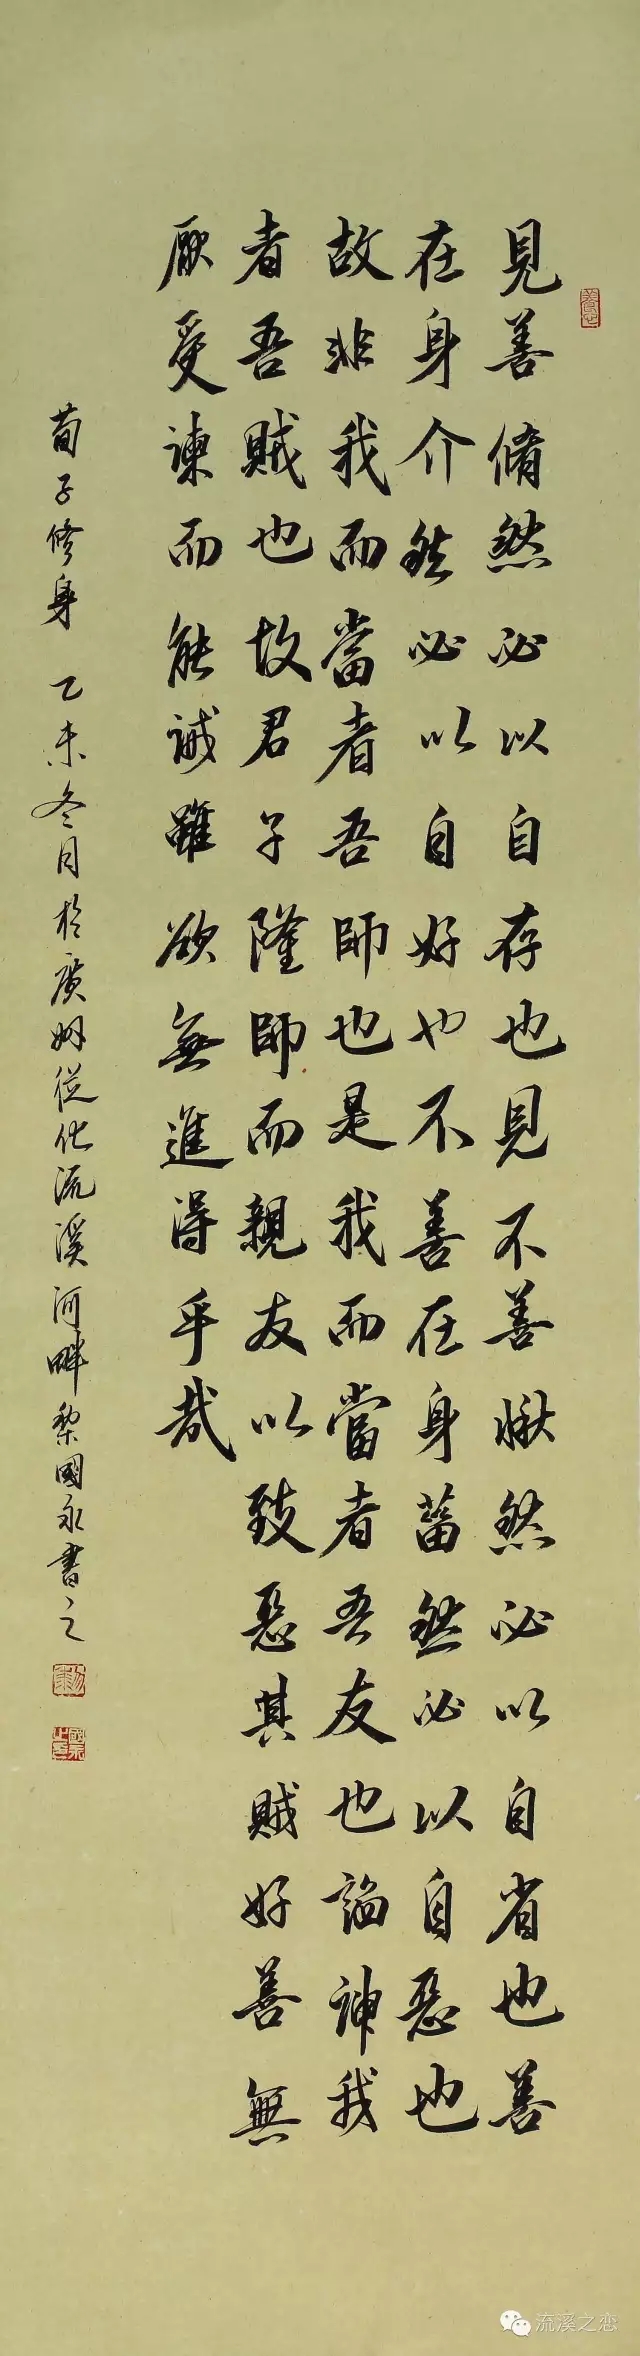 見善脩然必以自存也見不善愀然必以自省也善
在身介然必以自好也不善在身菑然必以自惡也
故非我而當者吾師也是我而當者吾友也諂諛我
者吾賊也故君子隆師而親友以致惡其賊好善無
厭受諫而能誡雖欲無進得乎哉
荀子修身 乙未冬月於廣州從化流溪河畔黎國永書之
流溪之恋